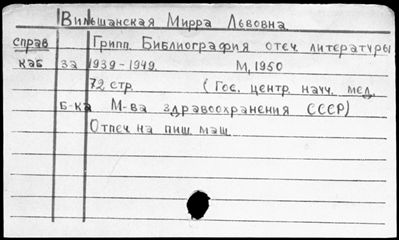 Вильшанская Мирра Львовна
справ Грипп. Библиография отеч. литературы
каб за 1939-1949. М, 1950
72 стр. (Гос. центр. научн. мед.
Б-ка М-ва здравоохранения СССР)
Отпеч на пиш. маш.